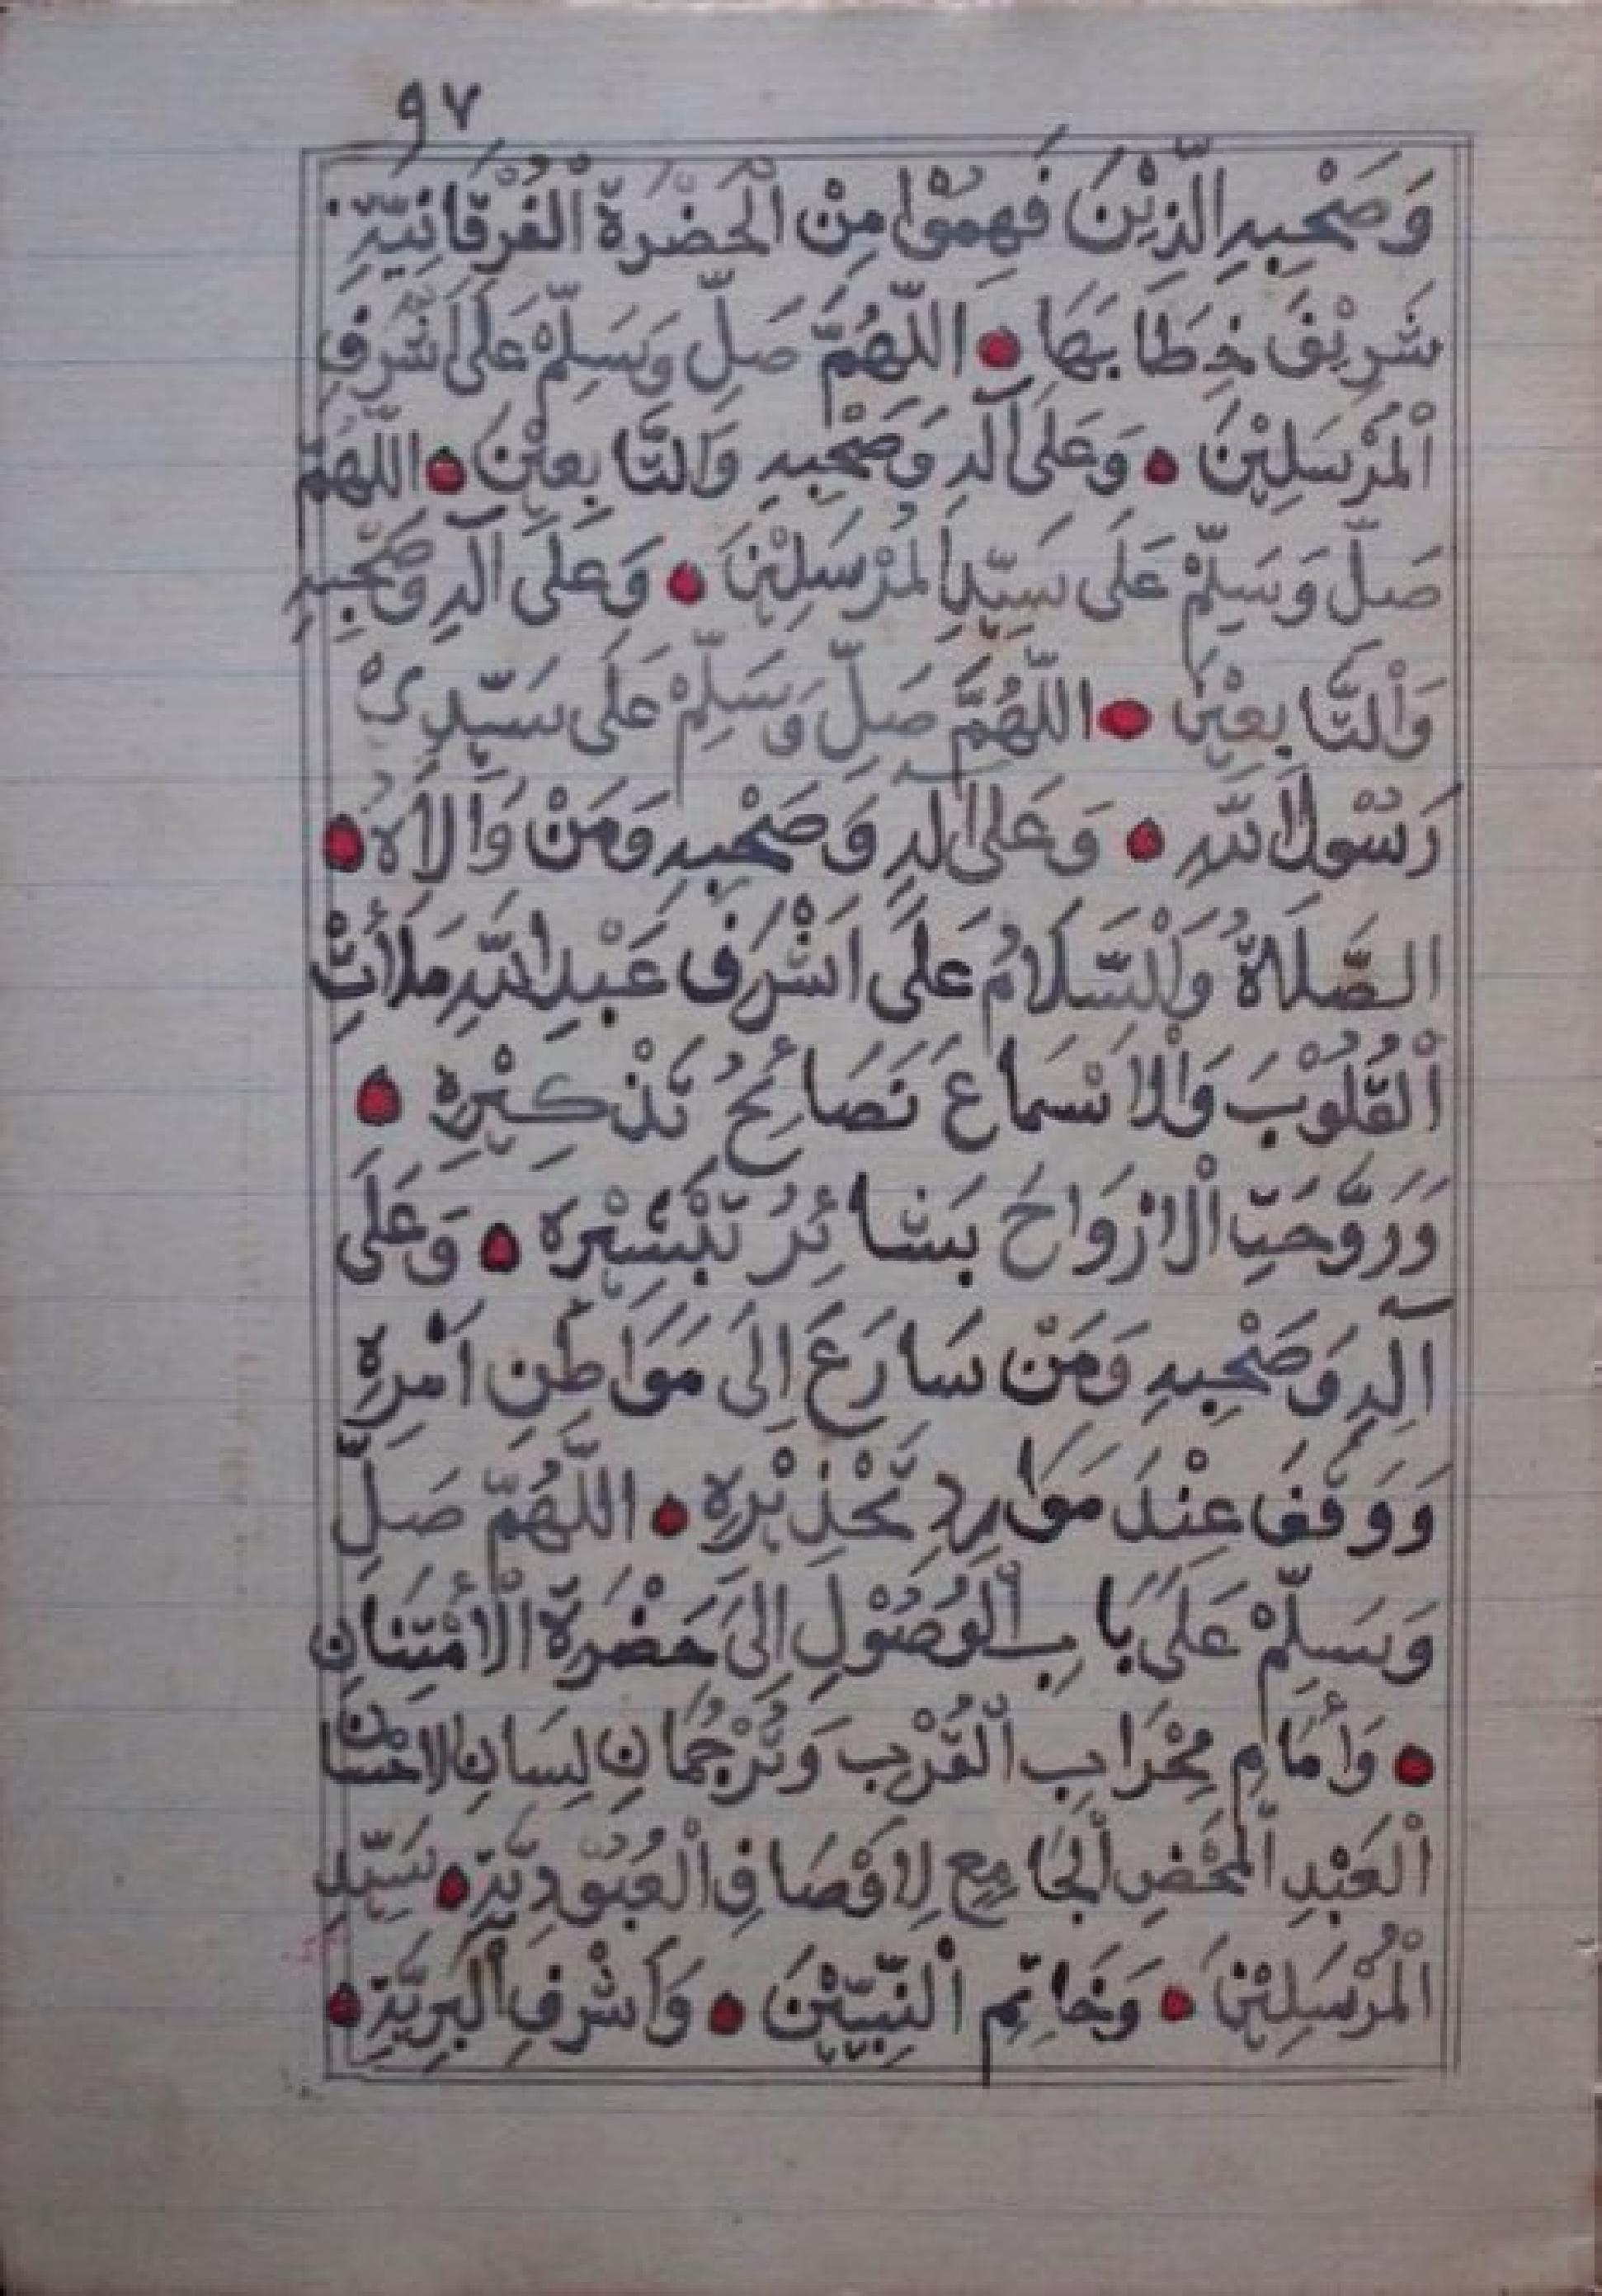 ٩٧
وَصَحْبِهِ الَّذِيْنَ فَهِمُوْا مِنْ الْحَضْرَةِ الْفُرْقَانِيَّةِ
شَرِيْفَ خِطَابِهَا • اللّهُمَّ صَلِّ وَسَلِّمْ عَلَى اَشْرَفِ
الْمُرْسَلِيْنَ • وَعَلَى آلِهِ وَصَحْبِهِ وَالتَّابِعِيْنَ • اللّهُمَّ
صَلِّ وَسَلِّمْ عَلَى سَيِّدِ الْمُرْسَلِيْنَ • وَعَلَى آلِهِ وَصَحْبِهِ
وَالْتَّابِعِيْنَ • اللّهُمَّ صَلِّ وَسَلِّمْ عَلَى سَيِّدِىْ
رَسُوْلِ اللّهِ • وَعَلَى آلِهِ وَصَحْبِهِ وَمَنْ وَالَاهُ •
الصَّلَاةُ وَالْسَّلَامُ عَلَى اَشْرَفِ عَبْدِ اللّهِ مَلَأَتْ
الْقُلُوْبَ وَالْاَسْمَاعَ نَصَائِحُ تَذْكِيْرِهِ •
وَرَوَّحَتِ الْاَرْوَاحَ بَشَائِرُ تَبْشِيْرِهِ • وَعَلَى
آلِهِ وَصَحْبِهِ وَمَنْ سَارَعَ اِلَى مَوَاطِنِ اَمْرِهِ
وَوَقَفَ عِنْدَ مَوَارِدِ تَحْذِيْرِهِ • اللّهُمَّ صَلِّ
وَسَلِّمْ عَلَى بَابِ الْوُصُوْلِ اِلَى حَضْرَةِ الْأمْتِنَانِ
• وَأَمَامِ مِحْرَابِ الْقُرْبِ وَتُرْجُمَانِ لِسَانِ الاحْسَانِ
الْعَبْدِ الْمَحْضِ الْجَامِعِ لِاَوْصَافِ الْعُبُوْدِيَّةِ • سَيِّدِ
الْمُرْسَلِيْنَ • وَخَاتِمِ الْنَّبِيّيْنَ • وَاَشْرَفِ الْبَرِيَّةِ •